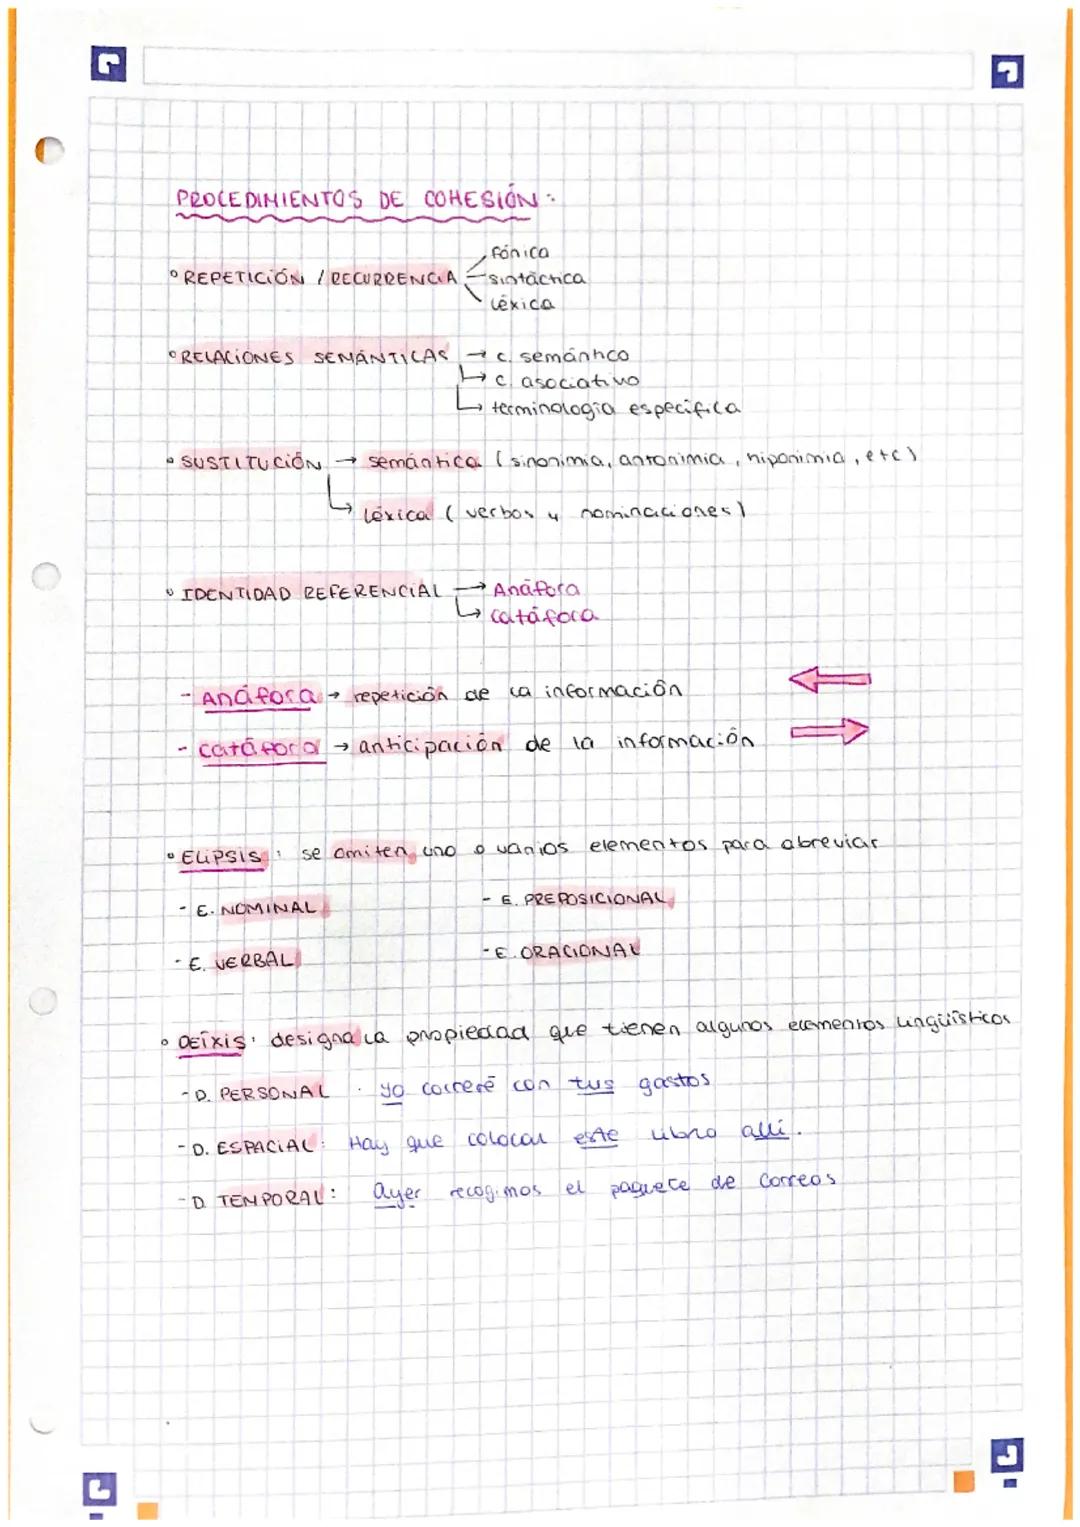 PROCEDIMIENTOS DE COHESIÓN:
fónica
° REPETICIÓN / RECURRENCIA sintáctica
léxica
° RELACIONES SEMÁNTICAS → c. semántico
→ c. asociativo
→ terminología específica
° SUSTITUCIÓN → semántica (sinonimia, antonimia, hiponimia, etc)
→ léxica (verbos y nominaciones)
° IDENTIDAD REFERENCIAL → Anáfora
→ catáfora
- Anáfora → repetición de la información
- catáfora → anticipación de la información
° ELIPSIS: se omiten uno o varios elementos para abreviar
- E. NOMINAL - E. PREPOSICIONAL
- E. VERBAL - E. ORACIONAL
° DEÍXIS: designa la propiedad que tienen algunos elementos lingüísticos
- D. PERSONAL: yo correré con tus gastos
- D. ESPACIAL: Hay que colocar este libro allí.
- D. TEMPORAL: ayer recogimos el paquete de Correos